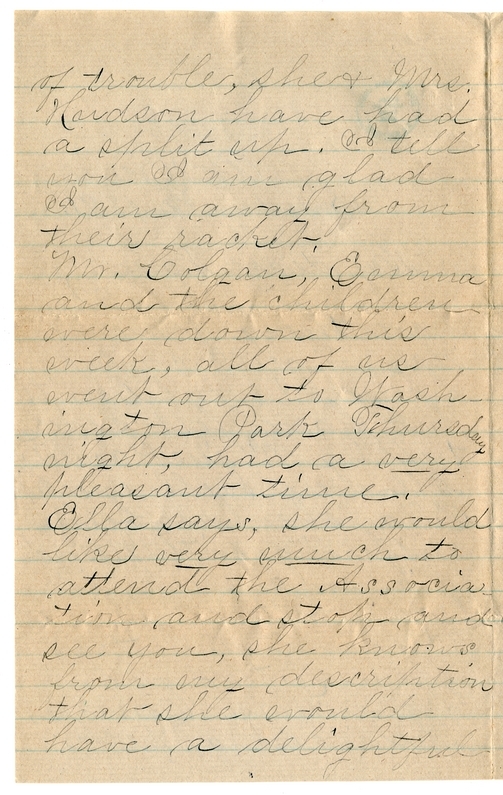 of trouble, she & Mrs.
Hudson have had
a split up. I tell
you I am glad
I am away from
their racket.
Mr. Colgan, Emma
and the children
were down this
week, all of us
went out to Wash-
ington Park Thursday
night, had a very
pleasant time.
Ella says, she would
like very much to
attend the Associa-
tion and stop and
see you, she knows
from my description
that she would
have a delightful